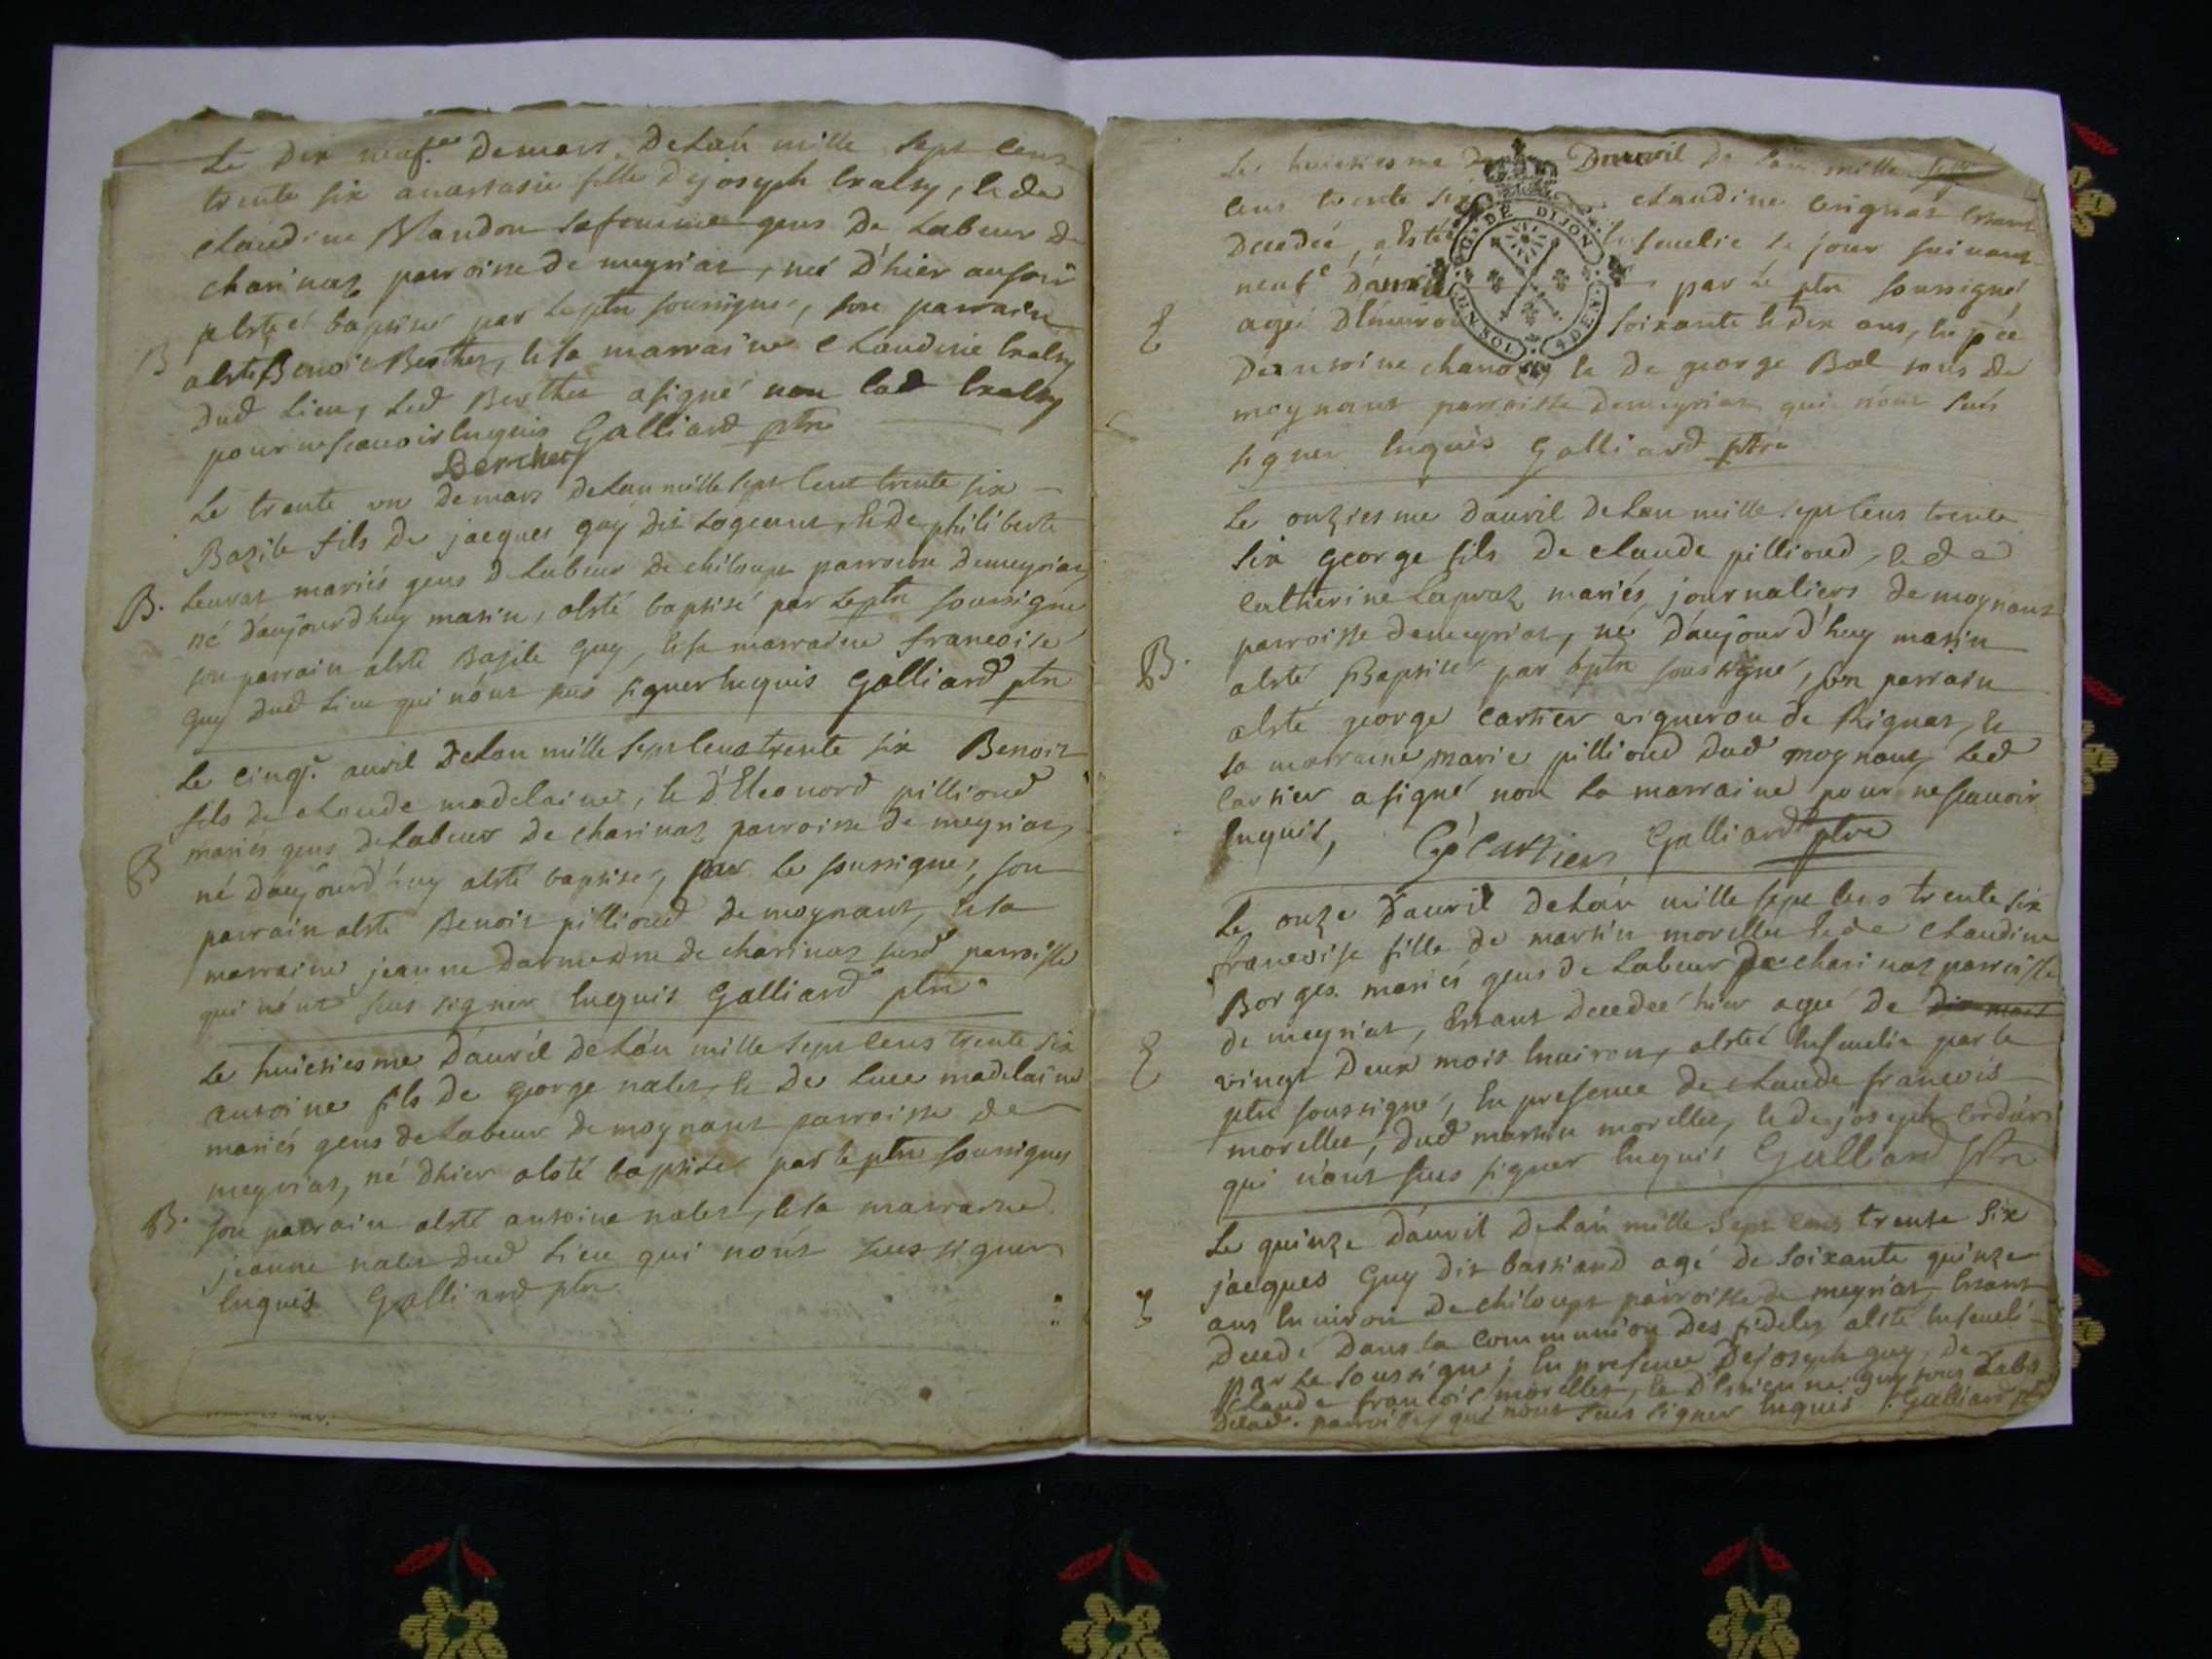 Le dix neuf.e de mars de lan mille sept cens
trente six anastasie fille de joseph cralty, & de
claudine Blandon sa femme gens de labeur de
charinaz parroisse de meyriat, neé d'hier au soir
B a esteé baptisé par le ptre soussigné, son parrain
a esté Benoit Berthet, & sa marraine claudine cralty
dud lieu, led Berthet a signé non lad cralty
pour ne scavoir enquis Galliard ptre
Berthet
Le trente un de mars de lan mille sept cent trente six
Bazile fils de jacques guy dit logeant, & de philiberte
B. mariés gens de labeur de chiloup parroisse de meyriat,
né daujourdhuy matin, a esté baptisé par le ptre soussigné
son parrain a esté Bazile guy, & sa marraine francoise
guy dud lieu qui n'ont sus signer enquis Galliard ptre
Le cinq.e avril de lan mille sept cens trente six Benoit
fils de claude madelaine, & d'Eleonord pilliond
mariés gens de labeur de charinaz parroisse de meyriat,
B né d'aujourd'huy a esté baptisé, par le soussigné, son
parrain a esté Benoit pilliond de moynant, & sa
marraine jeanne de charinaz susd parroisse
qui n'ont sus signer enquis Galliard ptre.
Le huictiesme d'avril de lan mille sept cens trente six
antoine fils de george nalet, & de luce madelaine
mariés gens de labeur de moynant parroisse de
meyriat, né dhier a esté baptisé par le ptre soussigné
B. son parrain a esté antoine nalet, & sa marraine
jeanne nalet dud lieu qui n'ont sus signer
enquis Galliard ptre
Le huictiesme D'avril de lan mille sept
cens trente six claudine estant
decedeé, a esteé ensevelie le jour suivant
neuf.e d'avril par le ptre soussigné
E ageé d'environ soixante & dix ans, en p.ce
d'antoine & de george Bal tous de
moynant parroisse de meyriat qui n'ont sus
signer enquis Galliard ptre
G. DE DIJON
Le onziesme d'avril de lan mille sept cens trente
six george fils de claude pilliond, & de
catherine Lapraz mariés journaliers de moynant
parroisse de meyriat, né d'aujourd'huy matin
B. a esté Baptisé par le ptre soussigné, son parrain
a esté george cartier vigneron de Rignat, &
sa marraine marie pilliond dud moynant, led
cartier a signé non la marraine pour ne scavoir
enquis, G. Cartier Galliard ptre
Le onze d'avril de lan mille sept cens trente six
francoise fille de martin morellet & de claudine
Borges mariés gens de labeur de charinaz parroisse
de meyriat, Estant decedeé hier ageé de dix mois
E vingt deux mois environ, a esteé ensevelie par le
ptre soussigné, en presence de claude francois
morellet, dud martin morellet, & de joseph
qui n'ont sus signer enquis Galliard ptre
Le quinze d'avril de lan mille sept cens trente six
jacques Guy dit bastiand agé de soixante quinze
E ans environ de chiloup parroisse de meyriat, Estant
decedé dans la communion des fideles a esté enseveli
par le soussigné, en presence de joseph guy, de
claude francois morellet, & d'Estienne guy tous
delad. parroisse qui n'ont sus signer enquis Galliard ptre